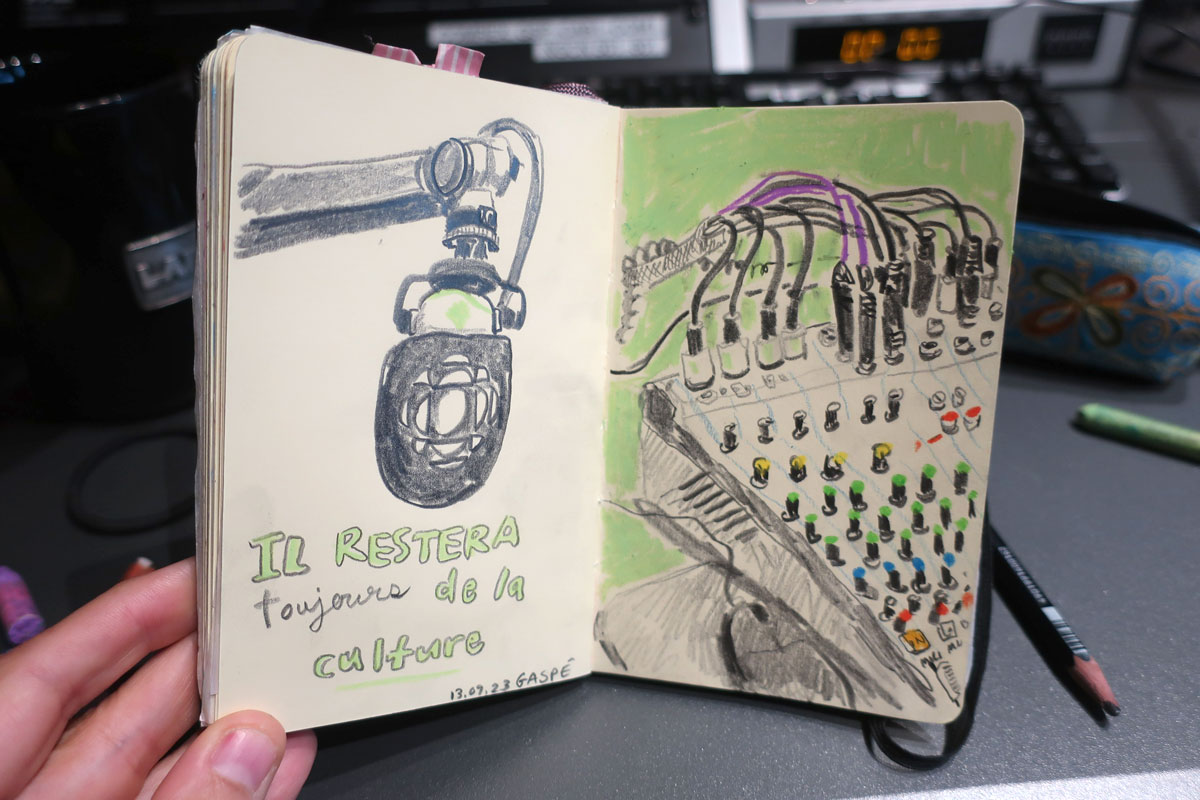 IL RESTERA
toujours de la
culture
13.09.23 GASPÉ
MIC1